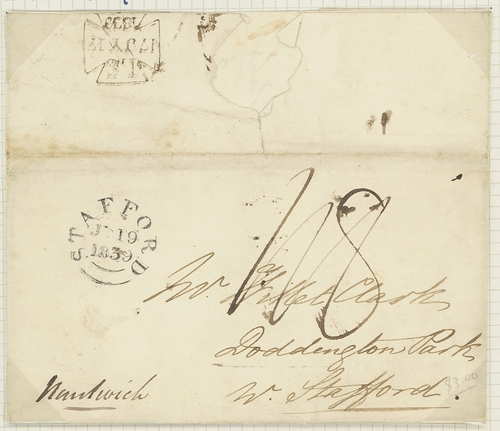 1839
STAFFORD
19
1839
1/8
Mr. Clark
Doddington Park
Nr. Stafford.
Nantwich
$3.00